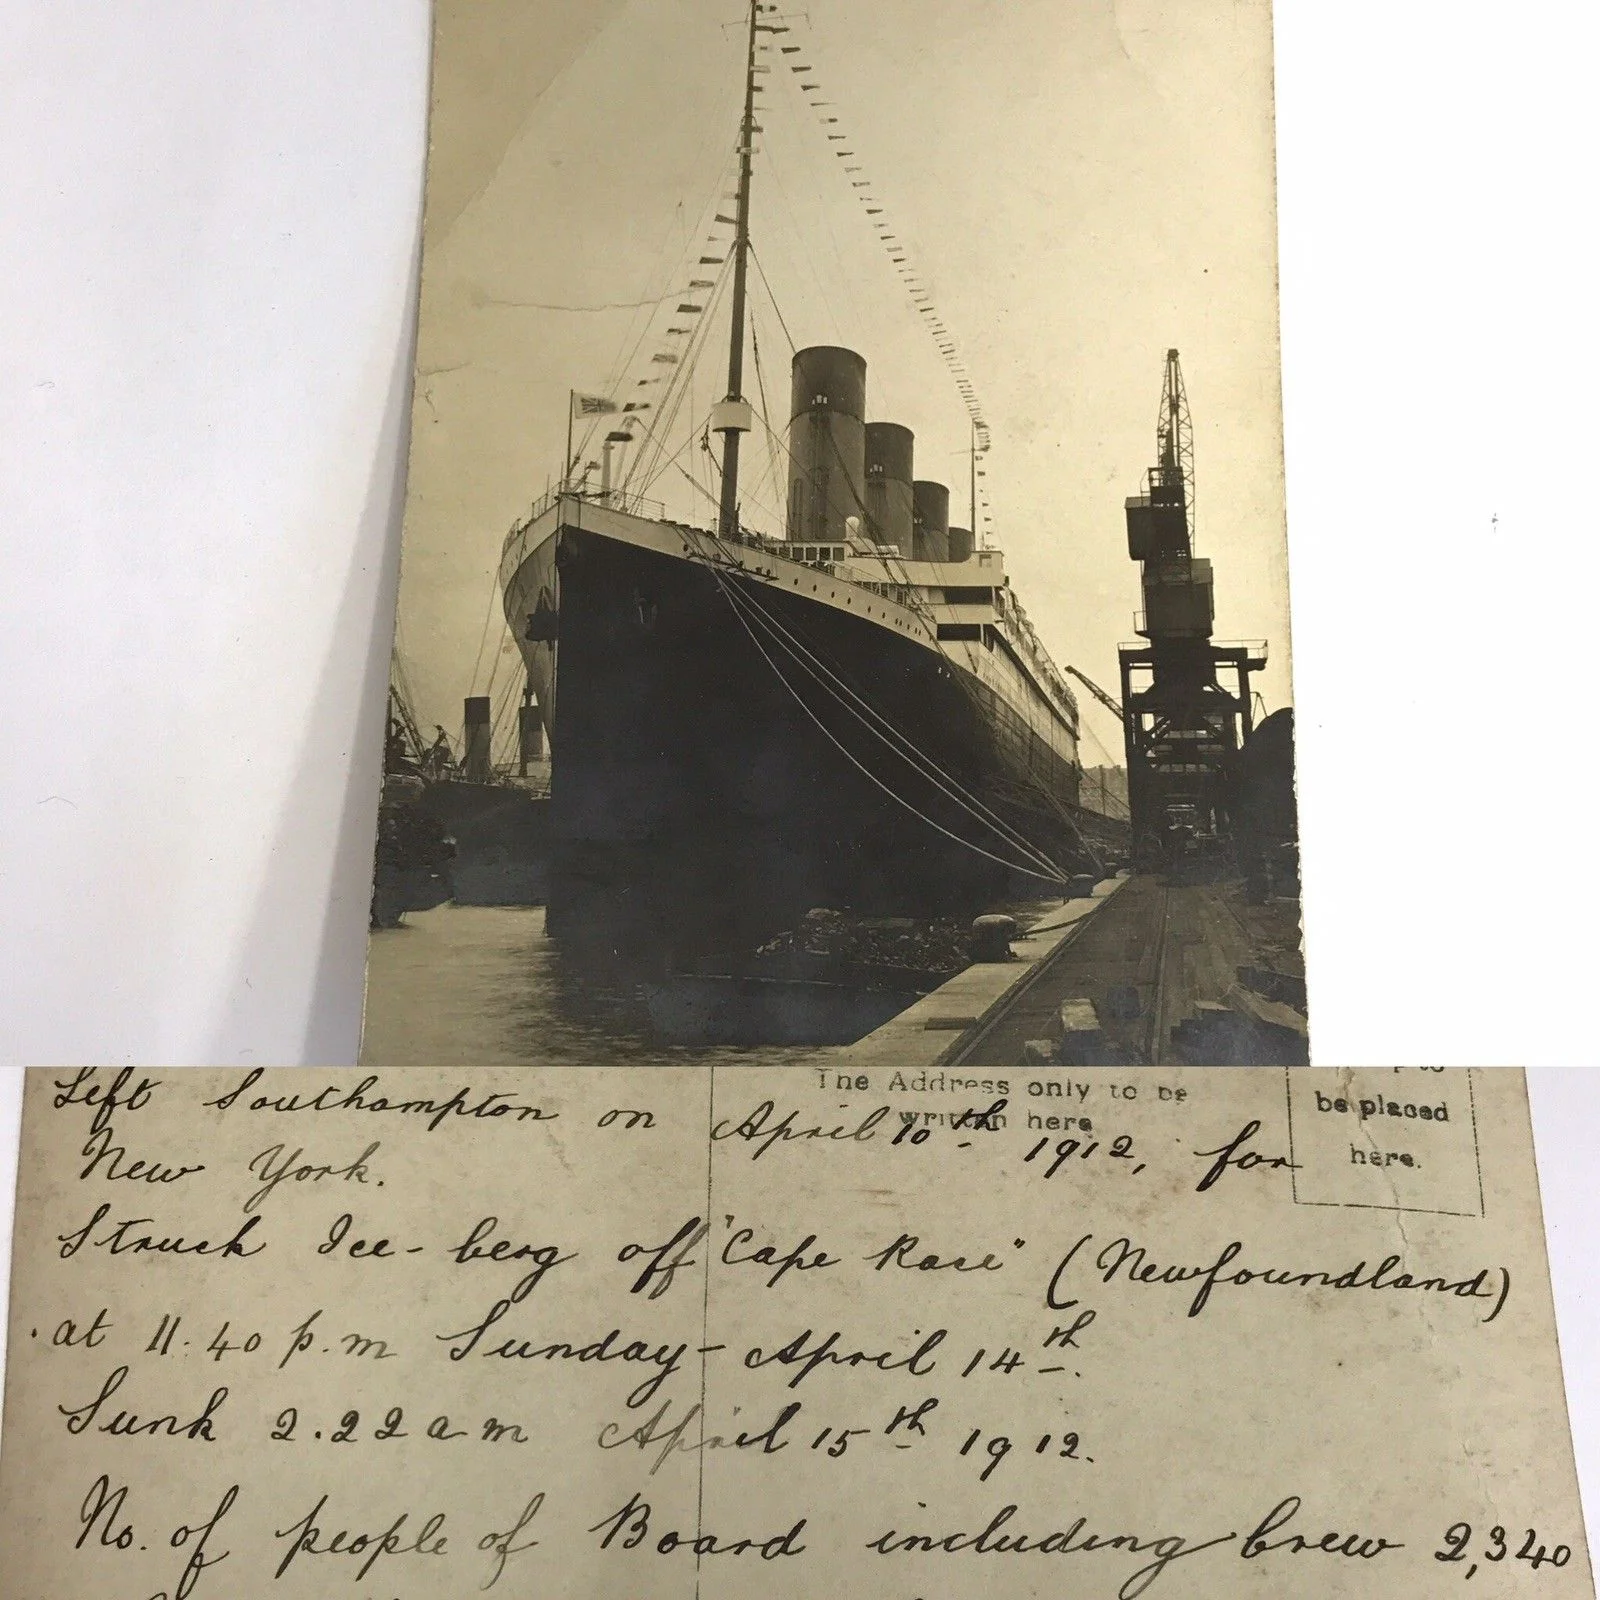 The Address only to be
written here
be placed
here.
Left Southampton on April 10th 1912, for
New York.
Struck Ice-berg off "Cape Race" (Newfoundland)
at 11.40 p.m Sunday - April 14th.
Sunk 2.22 a m April 15th 1912.
No. of people of Board including Crew 2,340